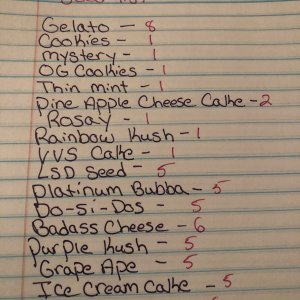 Gelato - 8
Cookies - 1
mystery - 1
OG Cookies - 1
Thin mint - 1
Pine Apple Cheese Cake - 2
Rosay - 1
Rainbow Kush - 1
VVS Cake - 1
LSD Seed - 5
Platinum Bubba - 5
Do-Si-Dos - 5
Badass Cheese - 6
Purple Kush - 5
Grape Ape - 5
Ice Cream Cake - 5